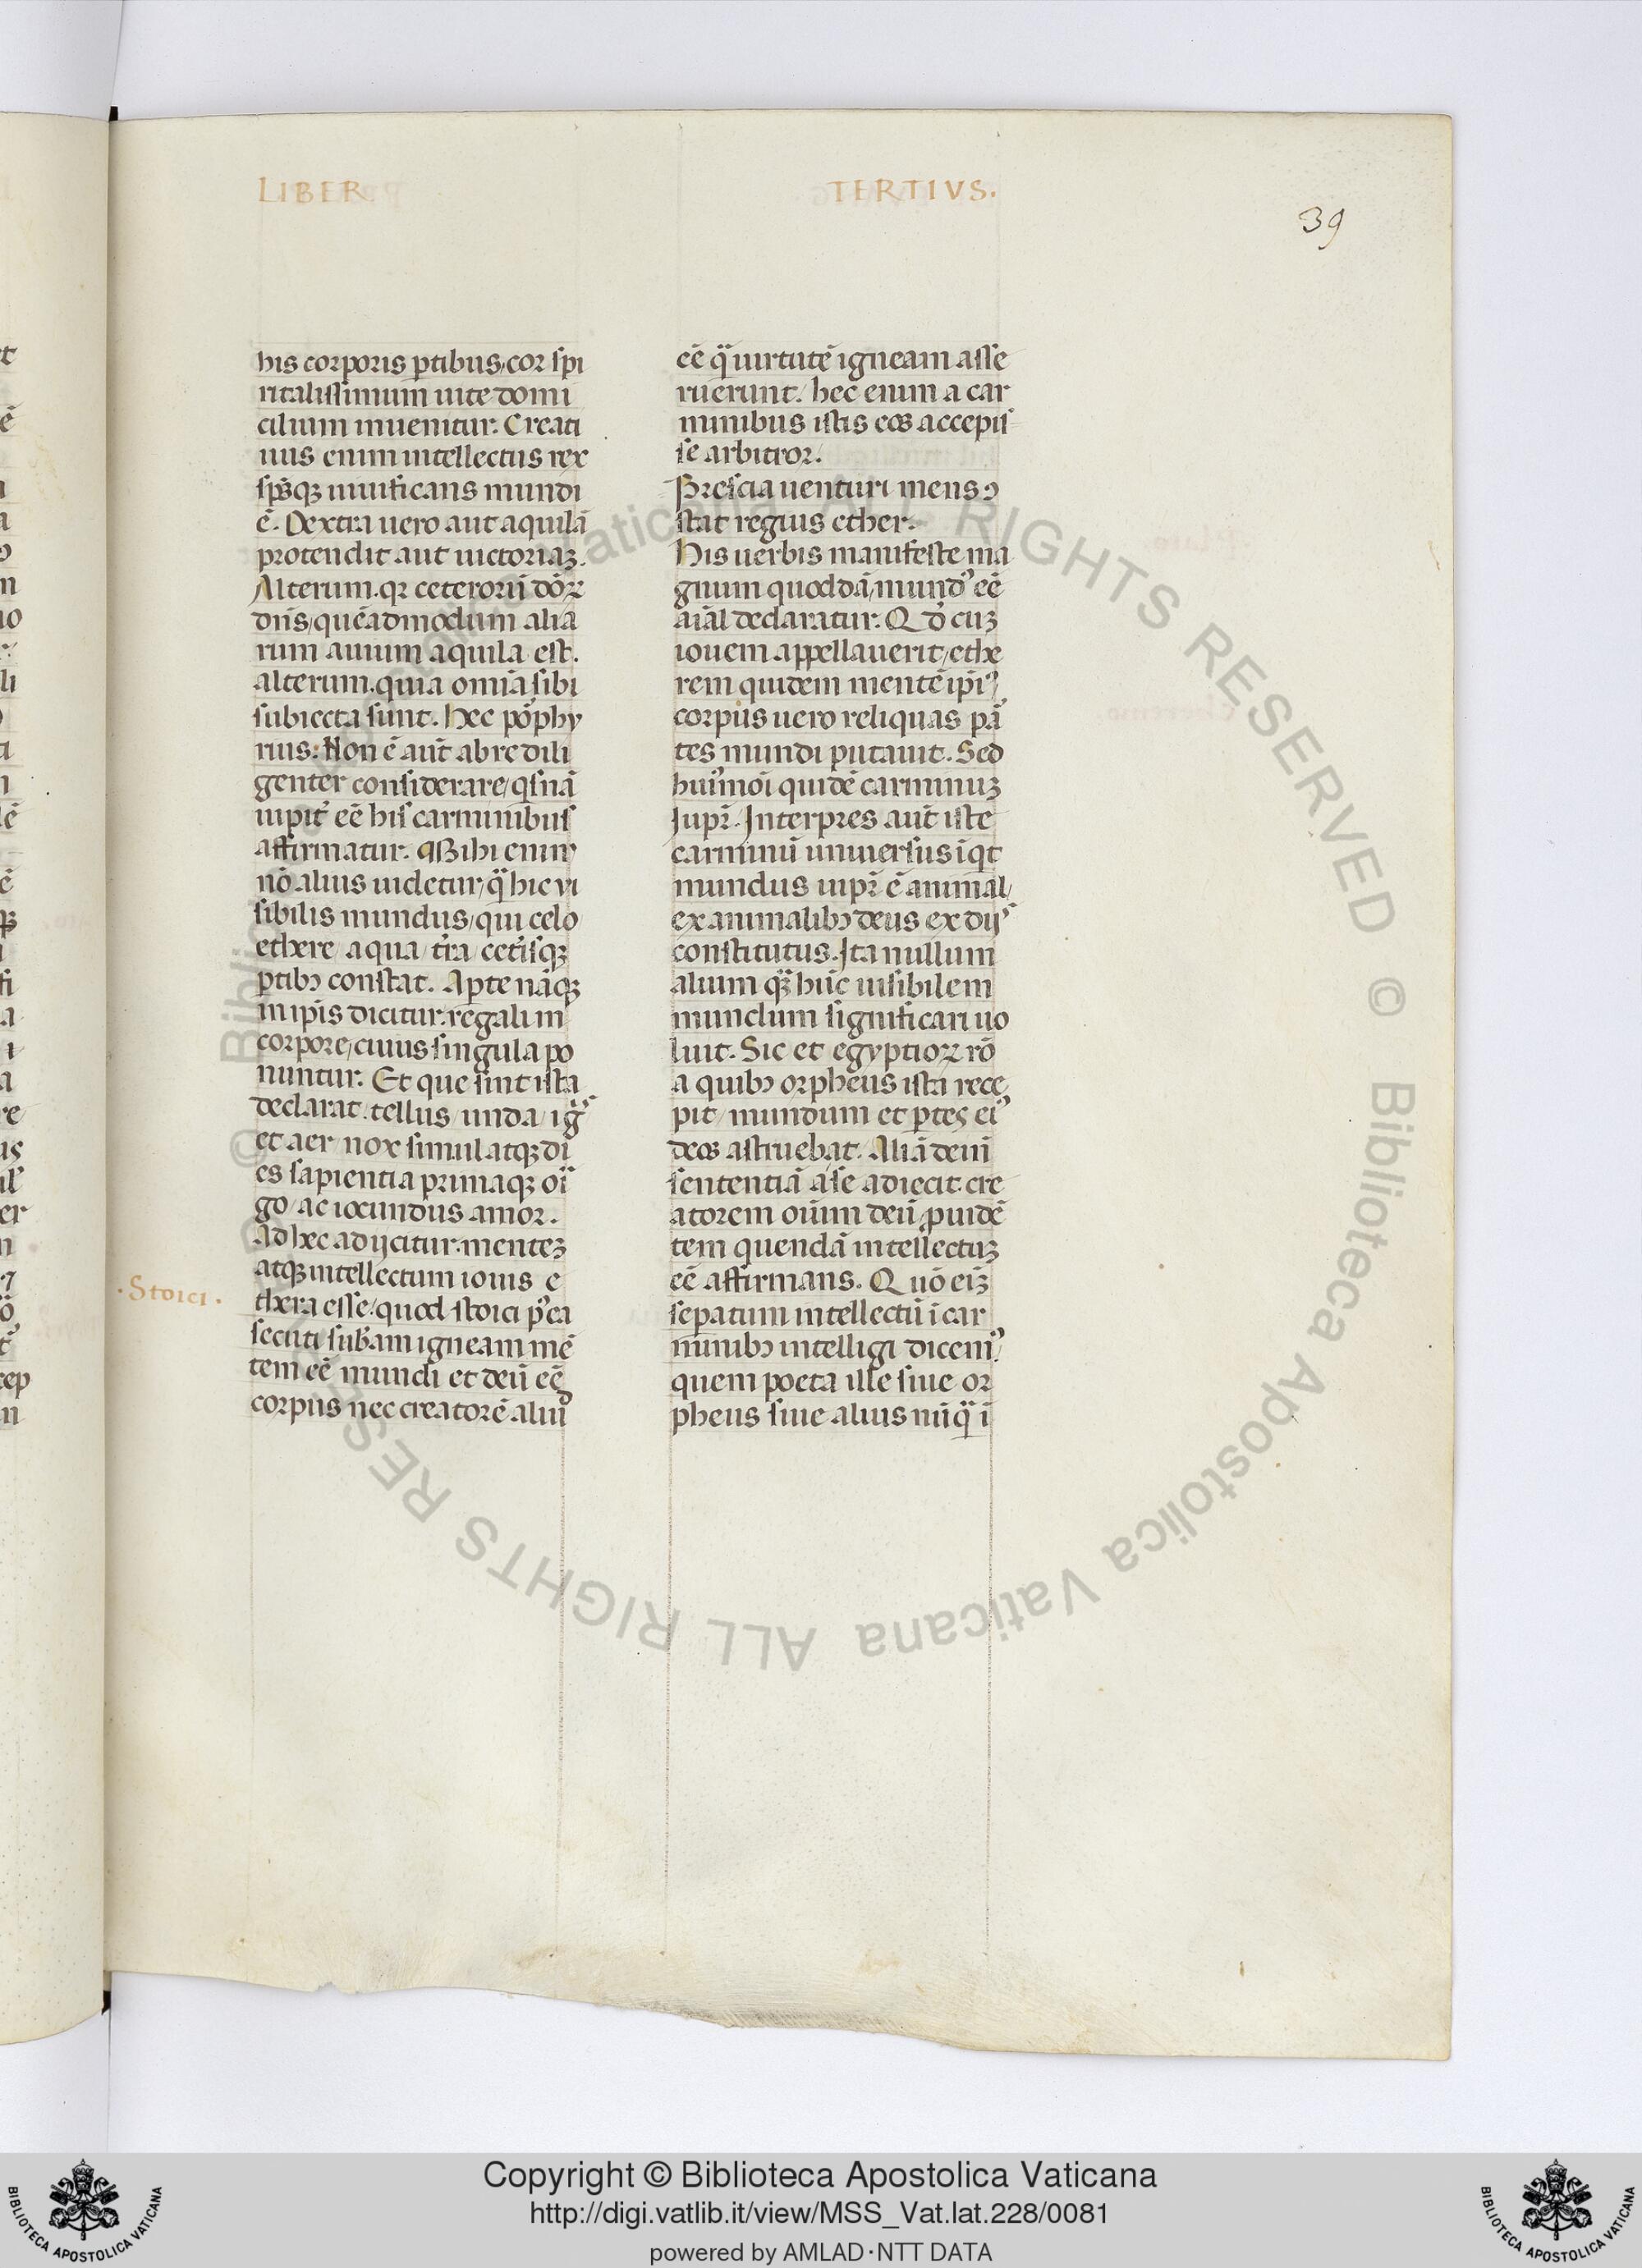 LIBER
TERTIVS.
39
his corporis ꝑtibus, cor spi
ritalissimum uite domi
cilium inuenitur. Creati
uus enim intellectus rex
sp̄sqꝫ uiuificans mundi
ē. Dextra uero aut aquilā
protendit aut uictoriaꝫ.
Alterum. qꝛ ceterorū dōꝝ
dn̄s, quēadmodum alia
rum auium aquila est.
alterum. quia omīa sibi
subiecta sunt. Hec poꝛphy
rius. Non ē aut̄ ab re dili
genter considerare, qͥsnā
iupit̄ eē his carminibus
affirmatur. Mihi enim
nō alius uidetur, qͣ̄ hic ui
sibilis mundus, qui celo
ethere aqua t̄ra cet̄isqꝫ
ꝑtibꝰ constat. Aperte nāqꝫ
in ip̄is dicitur. regali in
corpore, cuius singula po
nuntur. Et que sint ista
declarat. tellus unda ignͥs
et aer nox simul atqꝫ di
es sapientia primaqꝫ orī
go ac iocundus amor.
Ad hec adijcitur. menteꝫ
atqꝫ intellectum iouis e
·Stoici.
thera esse, quod stoici p̄ea
secuti sub̄am igneam mē
tem eē mundi et deū eē
corpus nec creatorē aliū
eē qͣ̄ uirtutē igneam asse
ruerunt. hec enim a car
minibus istis eos accepis
se arbitror.
Prescia uenturi mens ꝯ
stat regius ether.
His uerbis manifeste ma
gnum quoddā mundꝰ eē
aīal declaratur. Qꝺ cuꝫ
iouem appellauerit, ethe
rem quidem mentē ip̄iꝰ,
corpus uero reliquas par
tes mundi putauit. Sed
huiꝰmoī quidē carminuꝫ
Jup̄r. Interpres aut̄ iste
carminū uniuersus īqͥt
mundus iup̄r ē animal,
ex animalibꝰ deus ex dijs
constitutus. Ita nullum
alium qͣꝫ hūc uisibilem
mundum significari uo
luit. Sic et egyptioꝝ rō
a quibꝰ orpheus ista rece
pit, mundum et ꝑtes eiꝰ
deos astruebat. Aliā deni
sententiā a se adiecit. cre
atorem oīum deū ꝓuidē
tem quendā intellectuꝫ
eē affirmans. Quō eīꝫ
seꝑatum intellectū ī car
minibꝰ intelligi dicemꝰ,
quem poeta ille siue or
pheus siue alius nūqͣ̄ ī
Copyright © Biblioteca Apostolica Vaticana
http://digi.vatlib.it/view/MSS_Vat.lat.228/0081
powered by AMLAD·NTT DATA
BIBLIOTECA APOSTOLICA VATICANA
BIBLIOTECA APOSTOLICA VATICANA
© Biblioteca Apostolica Vaticana ALL RIGHTS RESERVED © Biblioteca Apostolica Vaticana ALL RIGHTS RESERVED